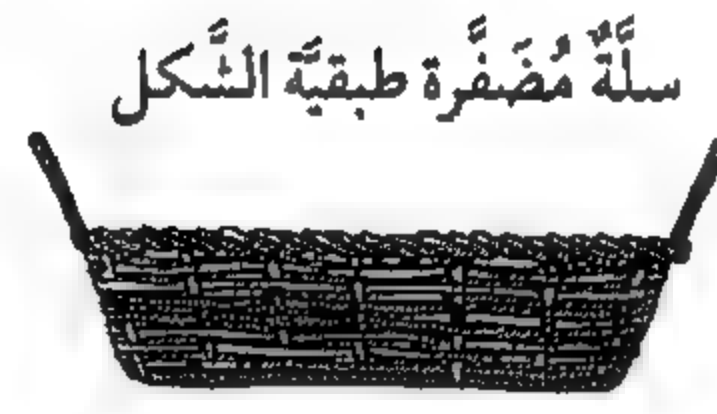 سلَّةٌ مُضَفَّرة طبقيَّة الشَّكل